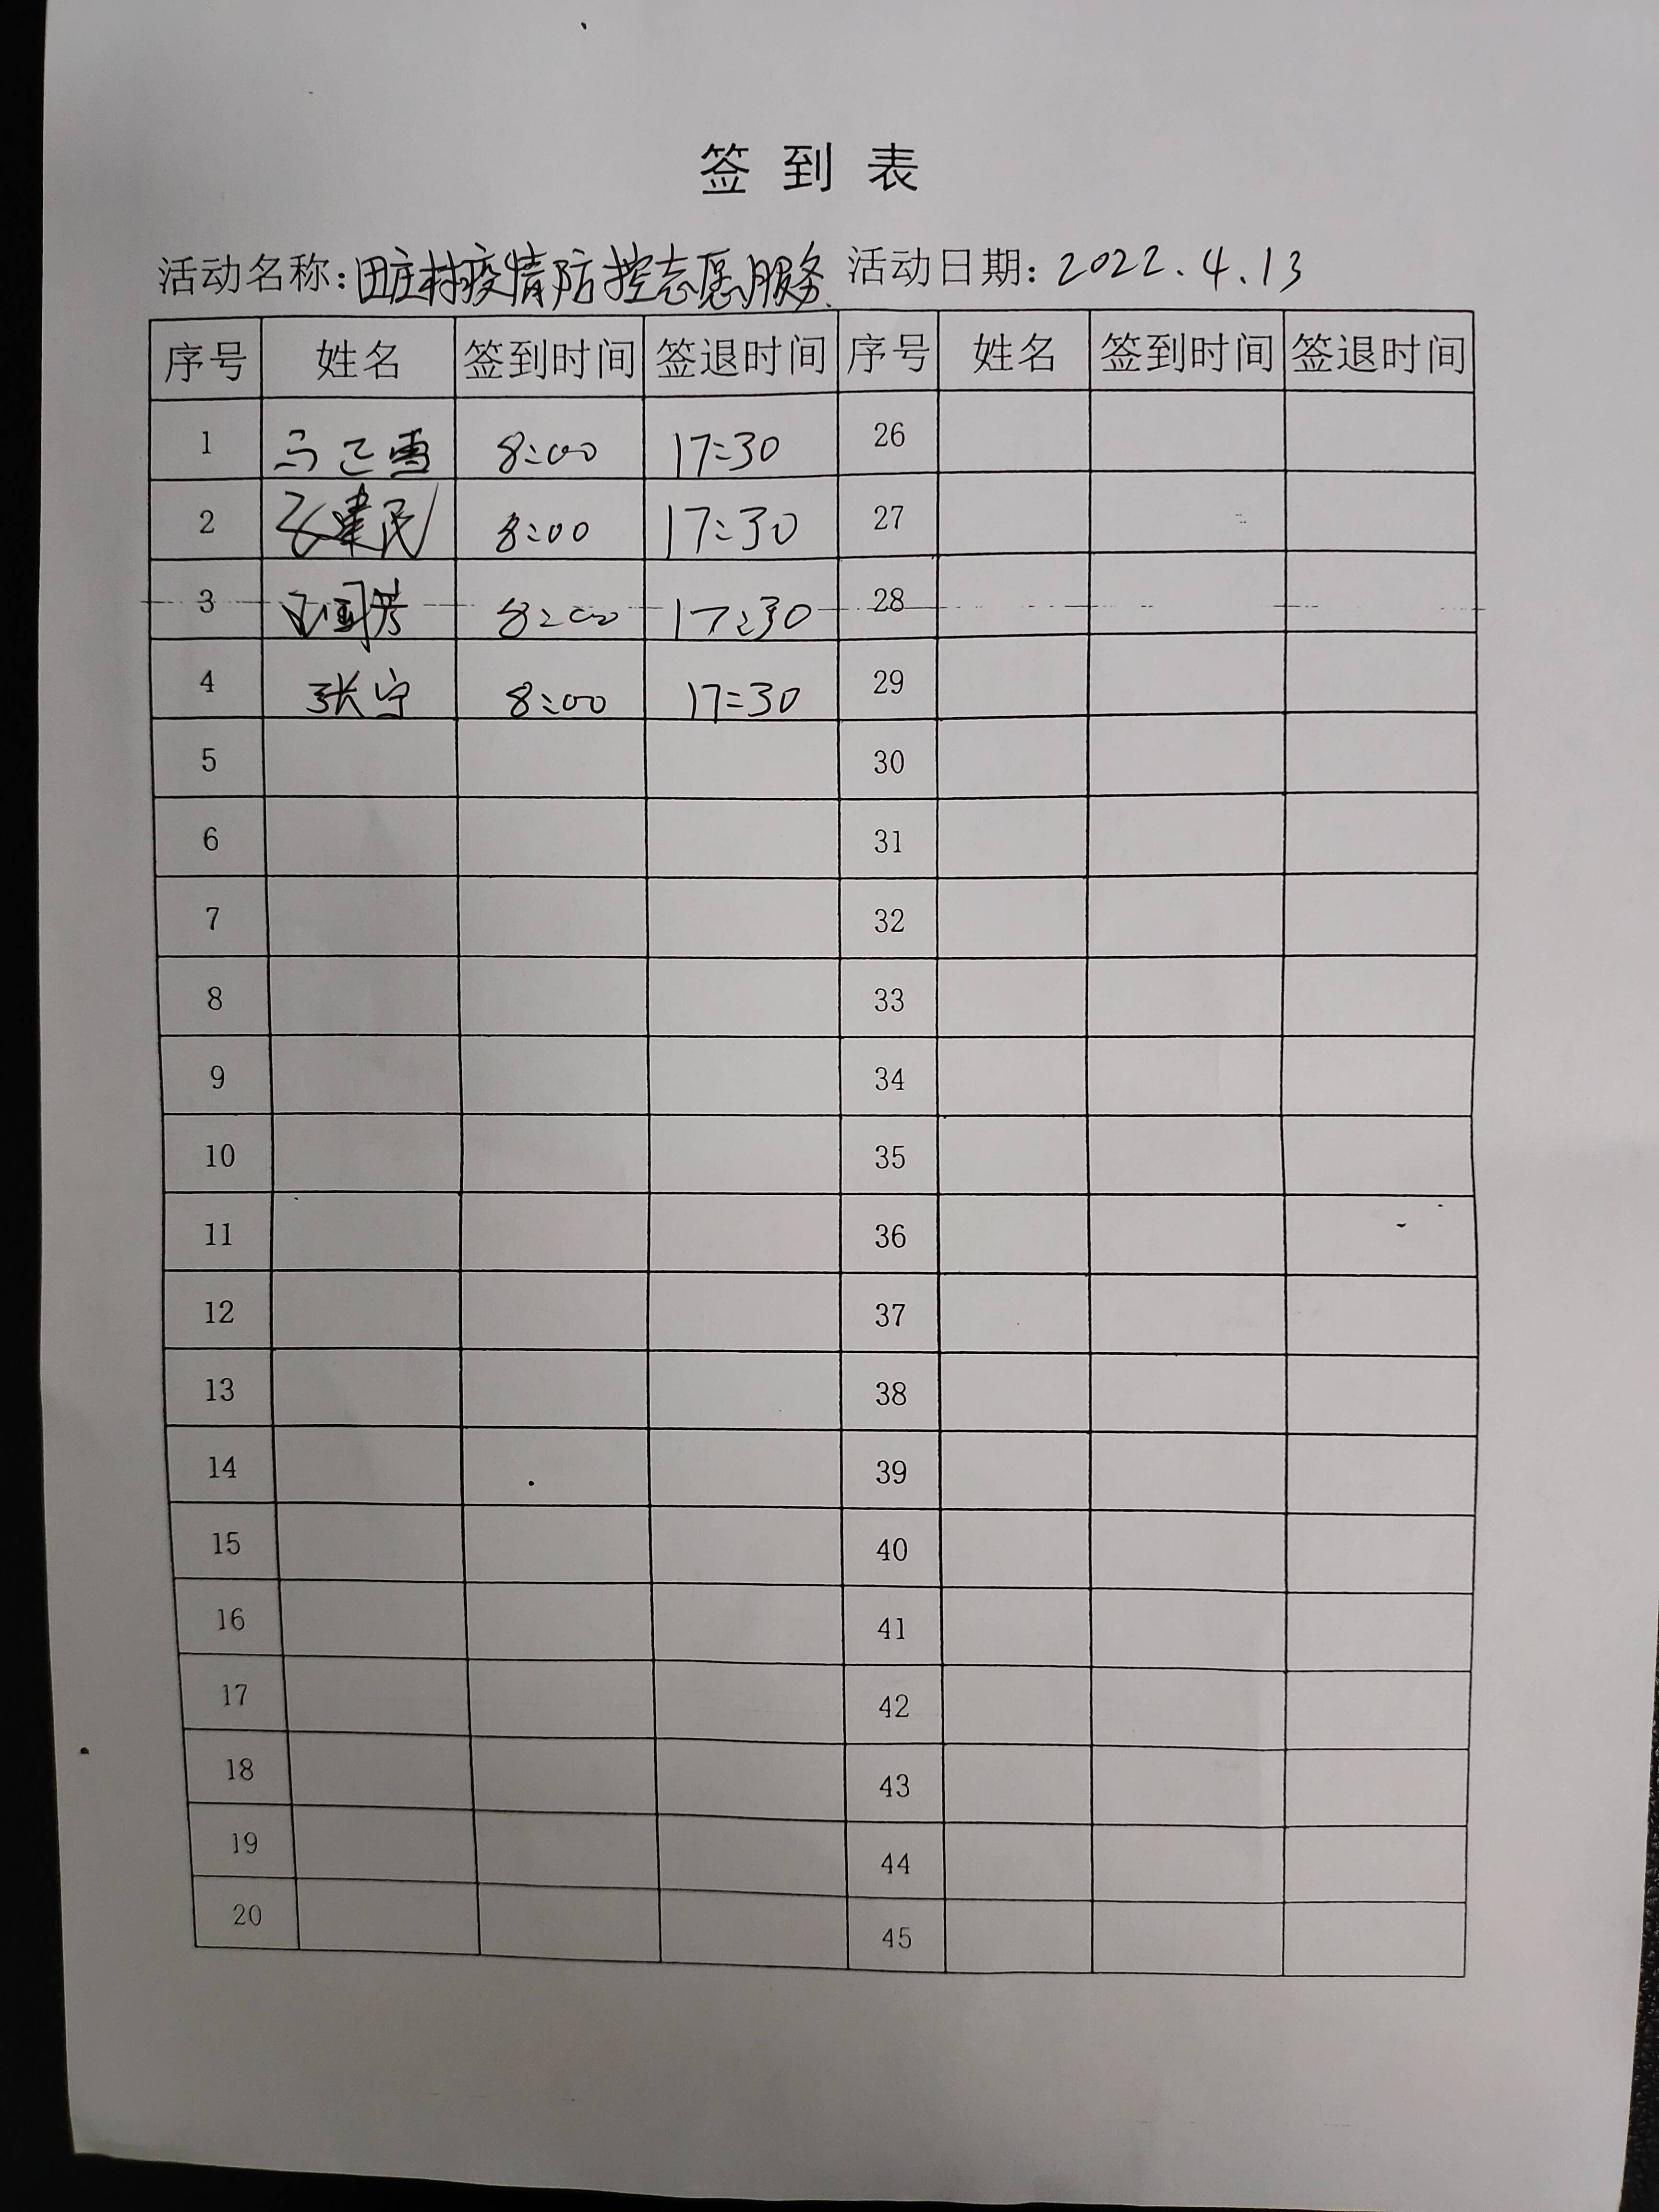 签到表
活动名称：田庄村疫情防控志愿服务 活动日期：2022.4.13
序号 姓名 签到时间 签退时间 序号 姓名 签到时间 签退时间
1 8:00 17:30 26
2 建民 8:00 17:30 27
3 8:00 17:30 28
4 张宁 8:00 17:30 29
5 30
6 31
7 32
8 33
9 34
10 35
11 36
12 37
13 38
14 39
15 40
16 41
17 42
18 43
19 44
20 45